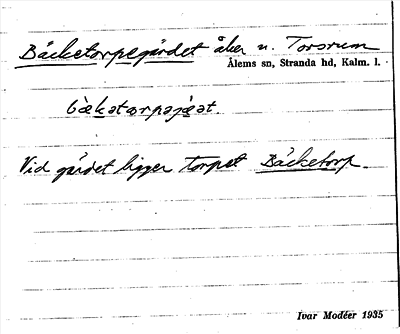 Bäcketorpsgärdet åker n. Torsrum
Ålems sn, Stranda hd, Kalm. l.
bæ̀kətɔrpsjæ̣ət.
Vid gärdet ligger torpet Bäcketorp.
Ivar Modéer 1935